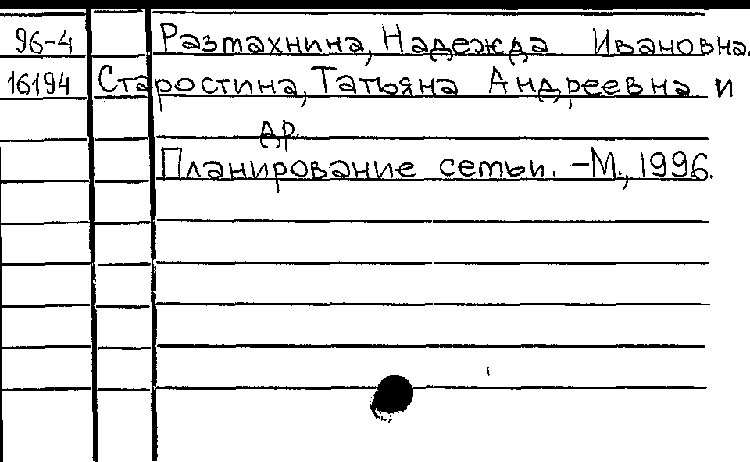 96-4 Размахнина, Надежда Ивановна.
16194 Старостина, Татьяна Андреевна и
др
Планирование семьи. -М., 1996.